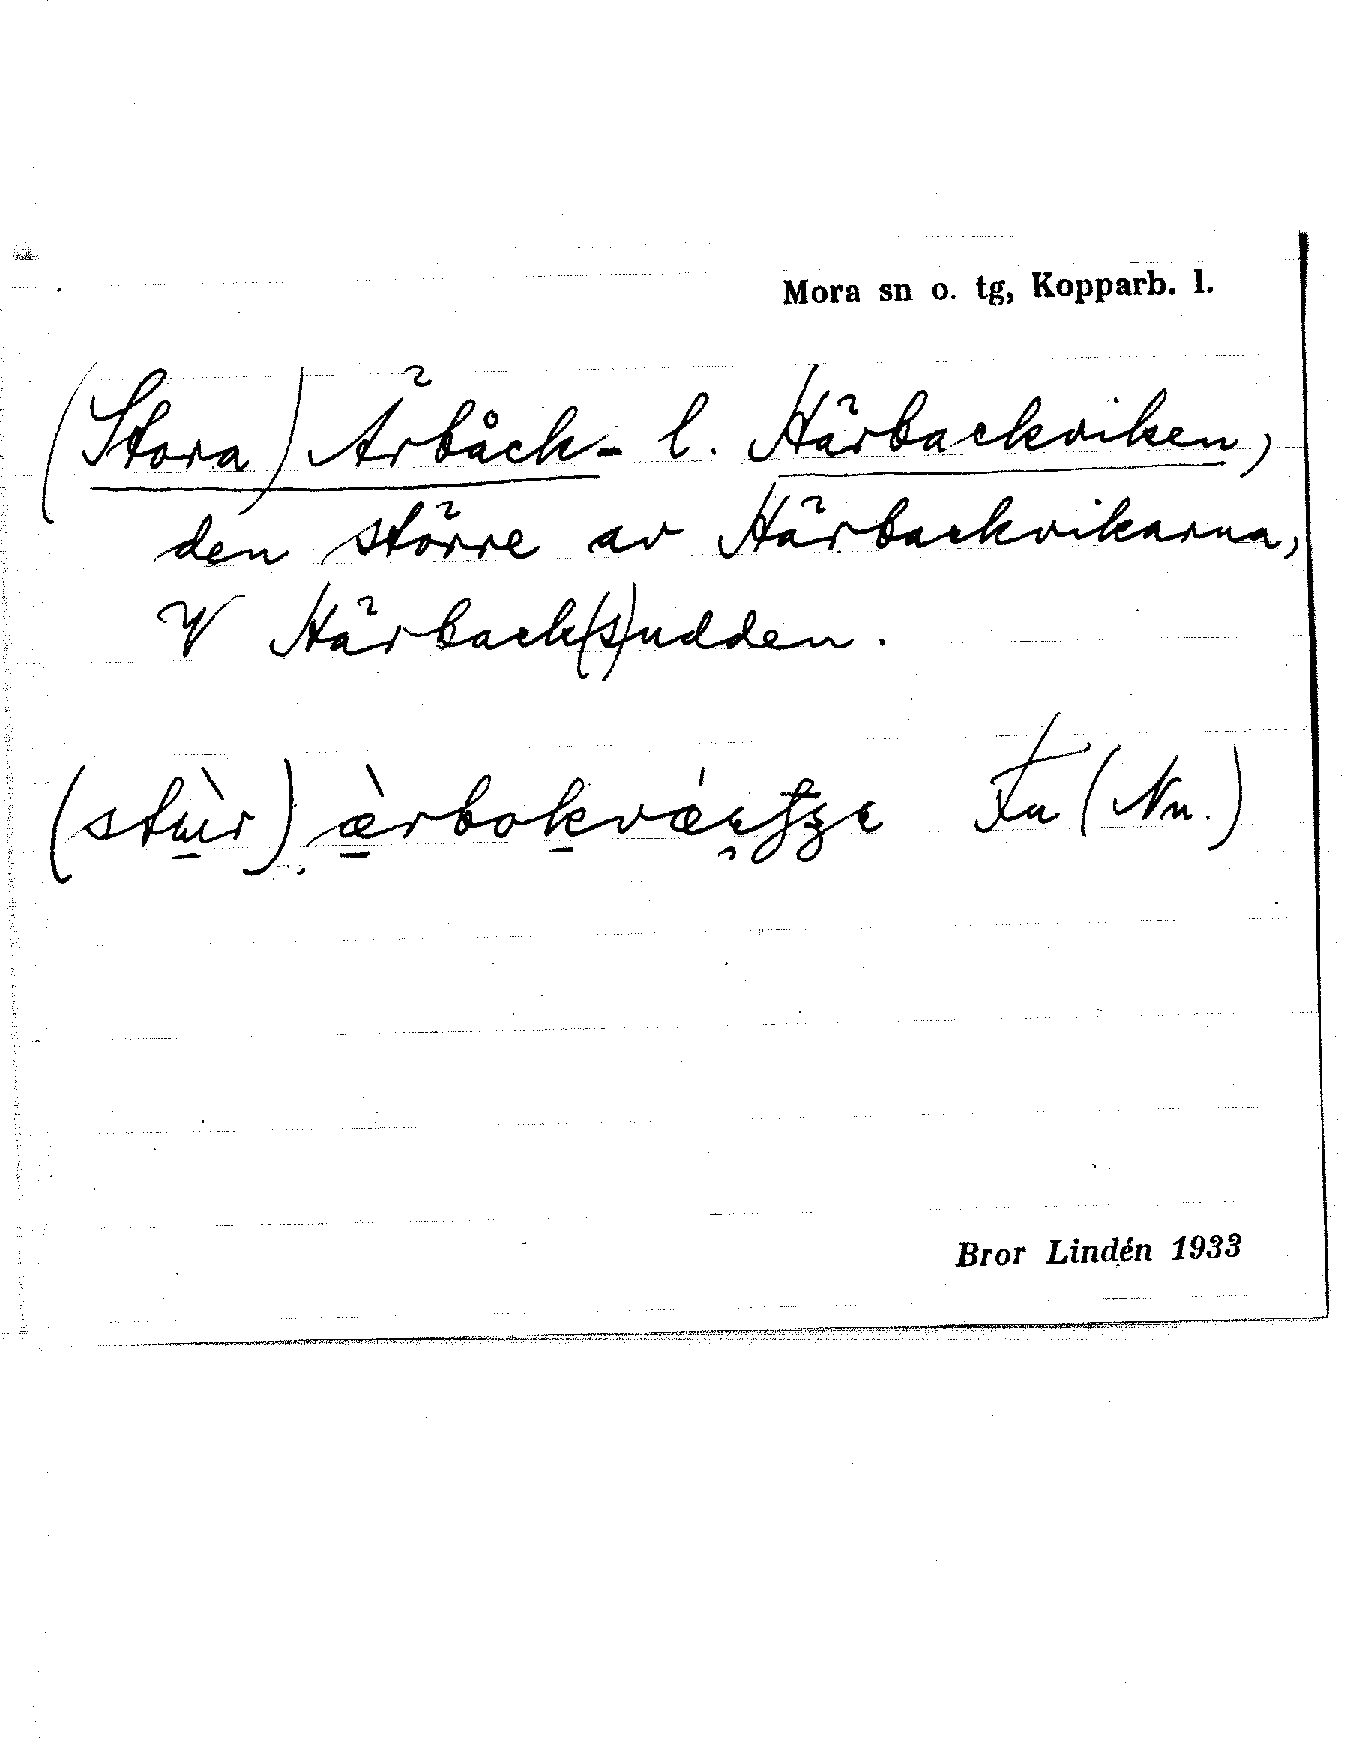 Mora sn o. tg, Kopparb. l.
(Stora) Ärbåck- l. Härbackviken,
den större av Härbackvikarna,
V Härback(s)udden.
(stù̲r) æ̲̀rbok̲vǽ
Bror Lindén 1933